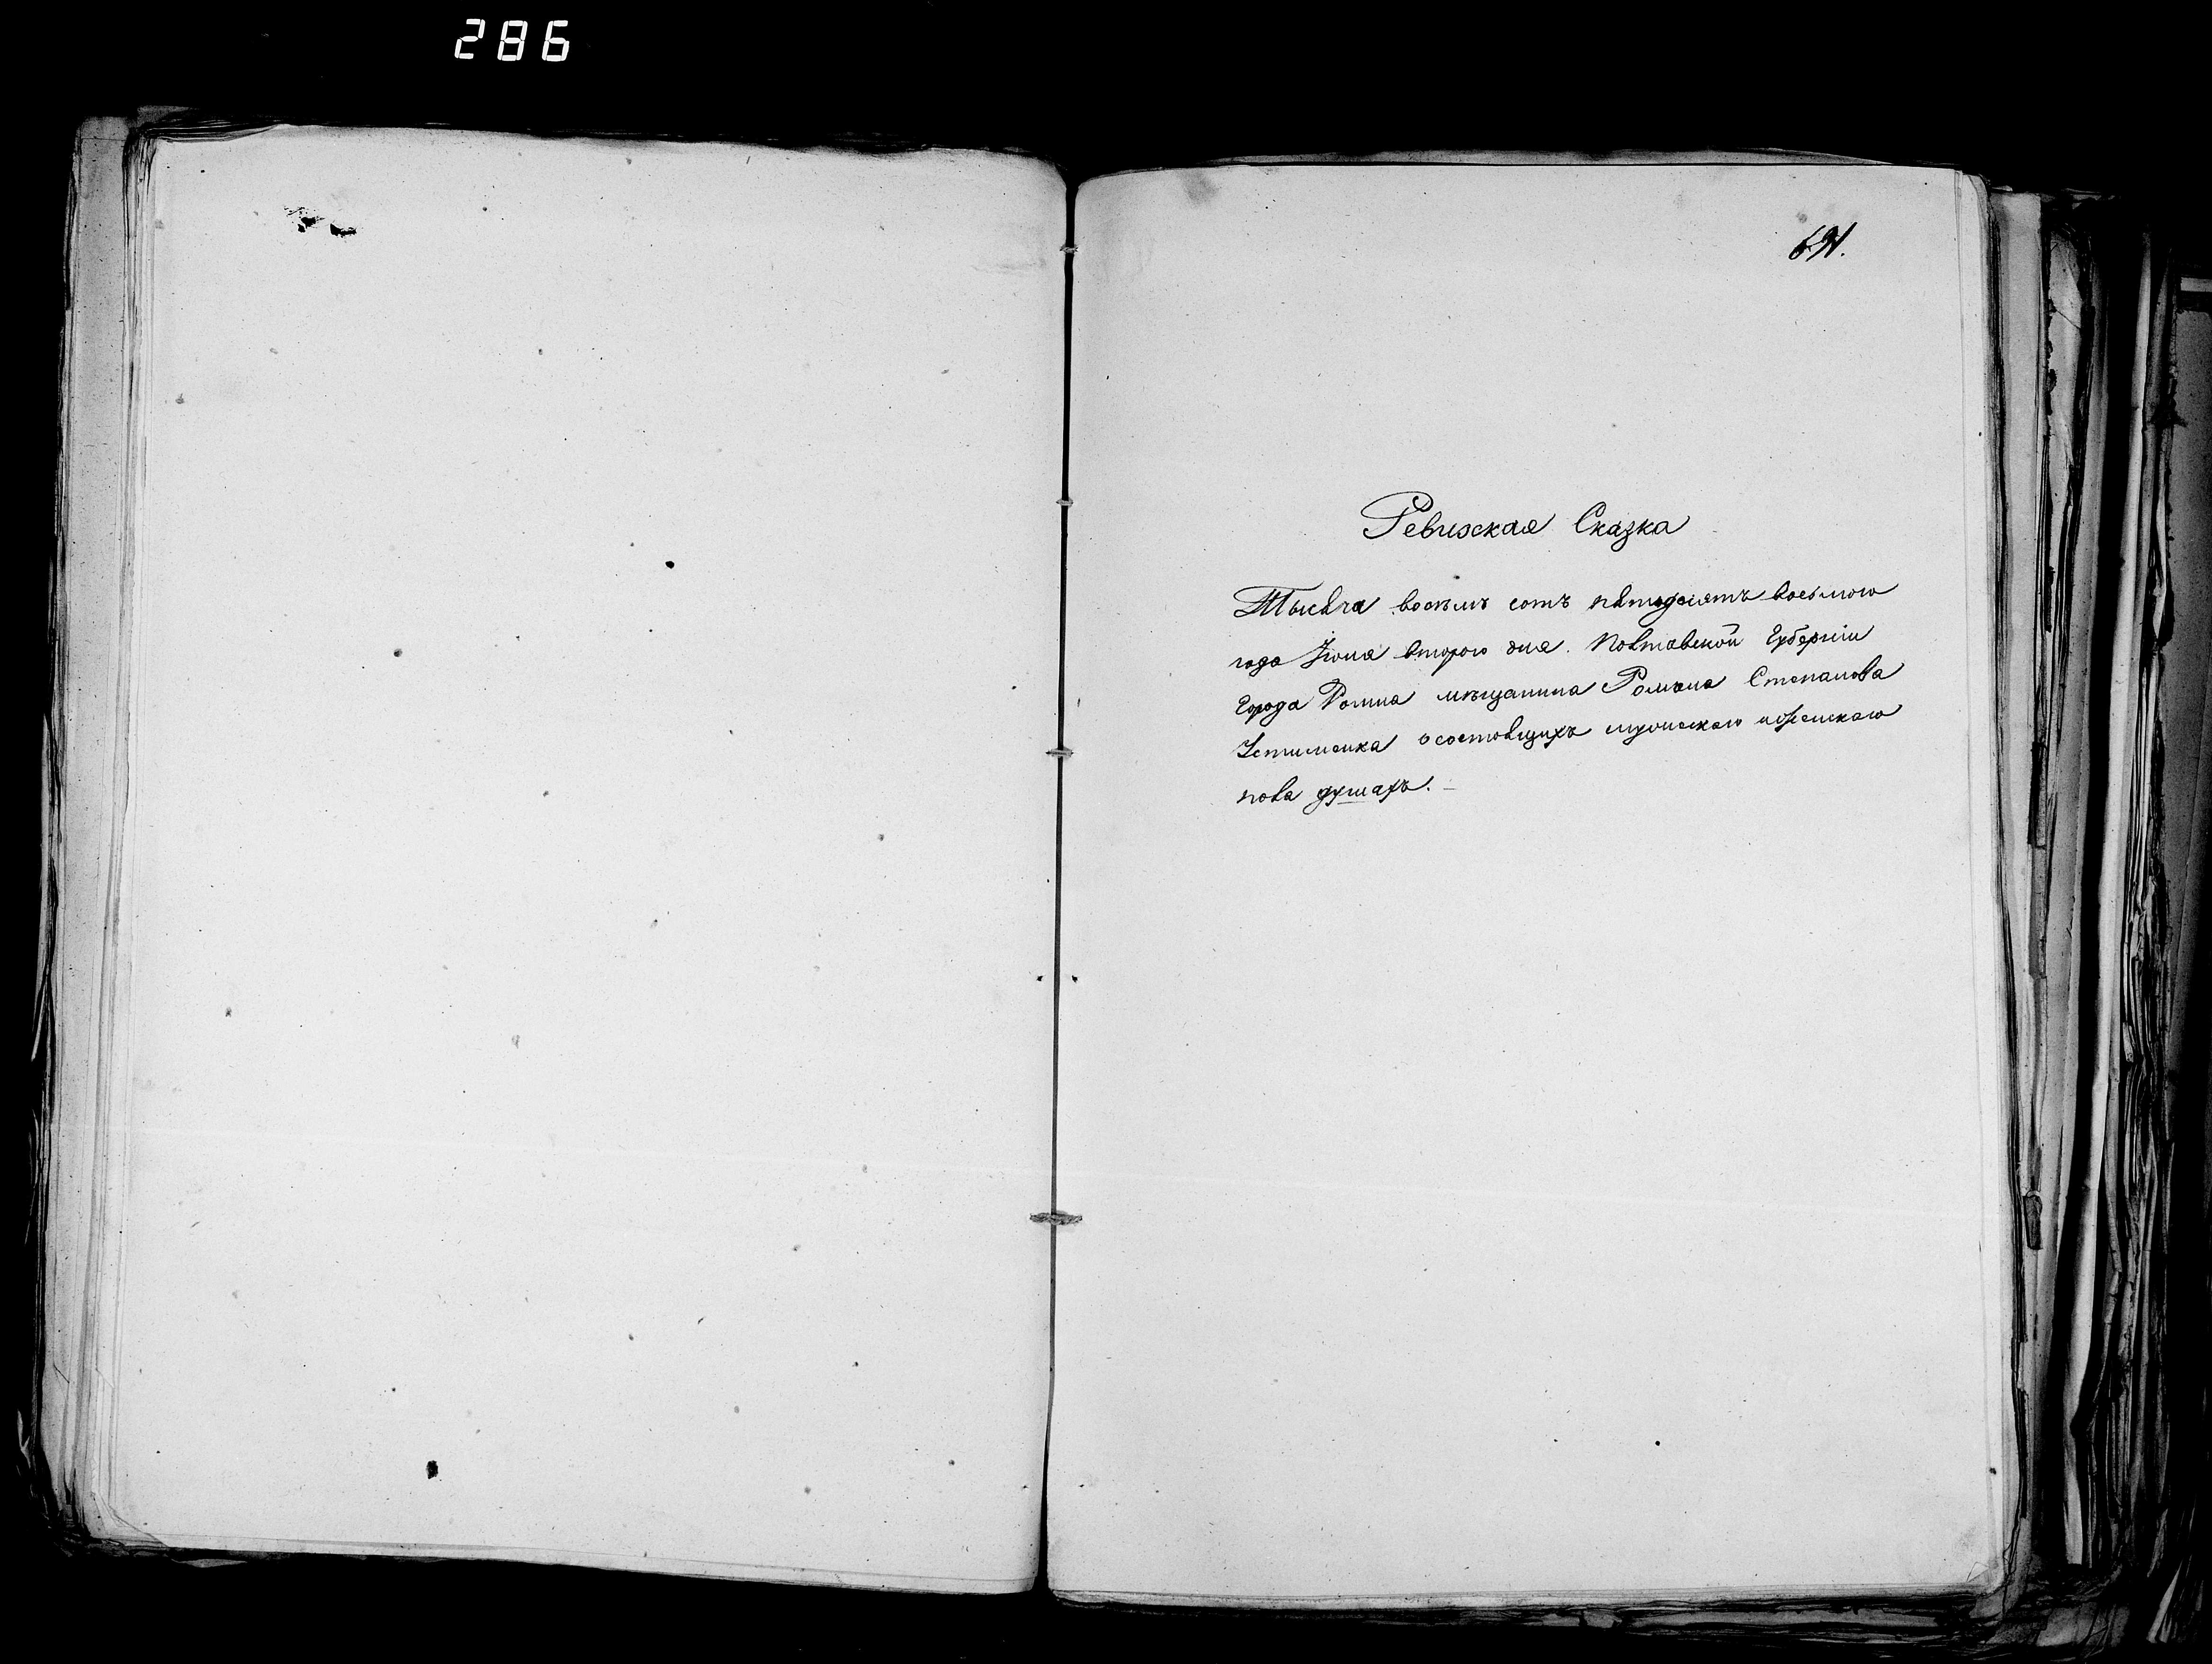 286
691.
Ревизская Сказка
Тысяча восемь сотъ пятьдесятъ восьмого
года Іюня второго дня. Полтавской Губерніи
Города Ромна мѣщанина Романа Степанова
Устименка о состоящихъ мужескаго и женскаго
пола душахъ. -